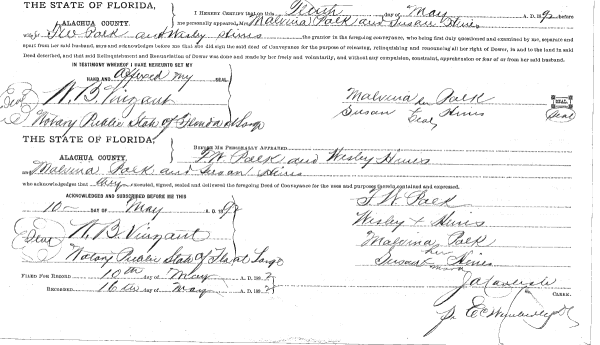 THE STATE OF FLORIDA,
ALACHUA COUNTY.
I HEREBY CERTIFY, that on this Tenth day of May A. D. 189 before
me personally appeared, Mrs Malvina Polk and Susan Hines
wife of F W Polk and Wesley Hines the grantor in the foregoing conveyance, who being first duly questioned and examined by me, separate and
apart from her said husband, says and acknowledges before me that she did sign the said deed of Conveyance for the purpose of releasing, relinquishing and renouncing all her right of Dower, in and to the land in said
Deed described, and that said Relinquishment and Renunciation of Dower was done and made by her freely and voluntarily, and without any compulsion, constraint, apprehension or fear of or from her said husband.
IN TESTIMONY WHEREOF I HAVE HEREUNTO SET MY
HAND AND affixed my SEAL.
Seal
N. B. Vinzant
Notary Public State of Florida at Large
Malvina Polk SEAL.
Susan Hines Seal
Seal
THE STATE OF FLORIDA,
ALACHUA COUNTY.
BEFORE ME PERSONALLY APPEARED F. W. Polk and Wesley Hines
and Malvina Polk and Susan Hines
who acknowledges that they executed, signed, sealed and delivered the foregoing Deed of Conveyance for the uses and purposes therein contained and expressed.
ACKNOWLEDGED AND SUBSCRIBED BEFORE ME THIS
10 DAY OF May A. D. 189
F. W. Polk
Wesley + Hines
Seal
N. B. Vinzant
Notary Public State of Fla at Large
Malvina Polk
her
Susan + Hines
mark
FILED FOR RECORD 10th day of May A. D. 189
RECORDED 16th day of May A. D. 189
J A Carlisle CLERK.